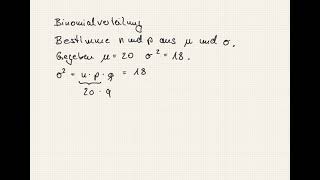 Binomialverteilung
Bestimme n und p aus μ und σ.
Gegeben μ = 20 σ² = 18.
σ² = n · p · q = 18
20 · q